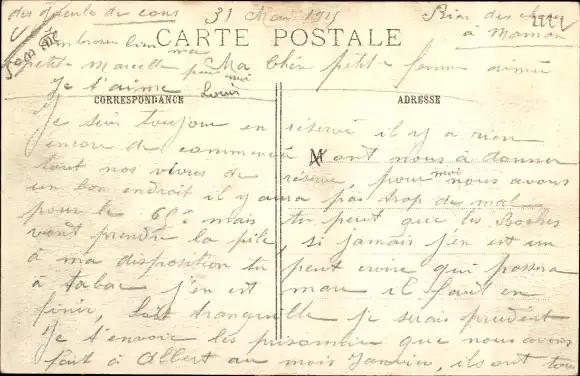 des gueule de cons 31 Mai 1915 Bien des choses
à Maman
CARTE POSTALE
embrasse bien ma
petite Marcelle pour moi Ma Chère petite femme aimée
Je t'aime Louis
CORRESPONDANCE ADRESSE
Je suis toujour en réserve il y a rien
encore de commencé ont nous à donner
tout nos vivres de réserve, pour moi nous avons
un bon endroit il y aura pas trop de mal
pour le 69e mais tu peut que les Boches
vont prendre la pile, si jamais j'en est un
à ma disposition tu peut croire qui passera
à tabac j'en est marre il faut en
finir, soit tranquille je serais prudent
Je t'envoie les prisonnier que nous avons
fait à Albert au mois Janvier, ils ont tous